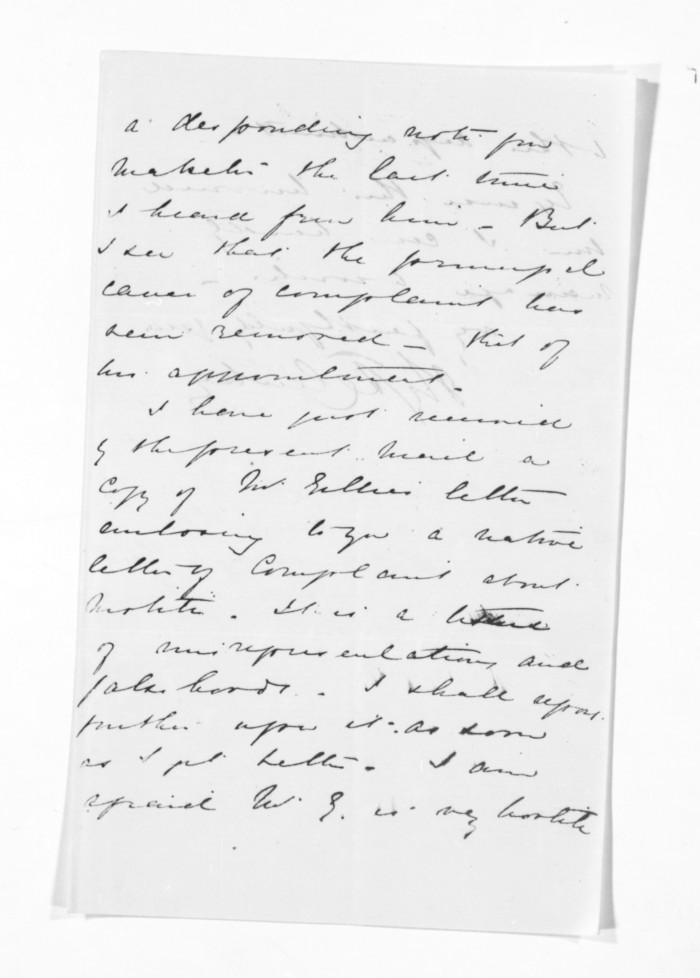 a desponding note from
the last time
I heard from him - But
I see that the principal
cause of complaint has
been removed - that of
his appointment.
I have just received
by the present Mail a
copy of Mr Gillies letter
enclosing to you a native
letter of Complaint about
. It is a
of misrepresentations and
falsehoods. I shall report
further upon it as soon
as I get better. I am
afraid Mr G. is very hostile